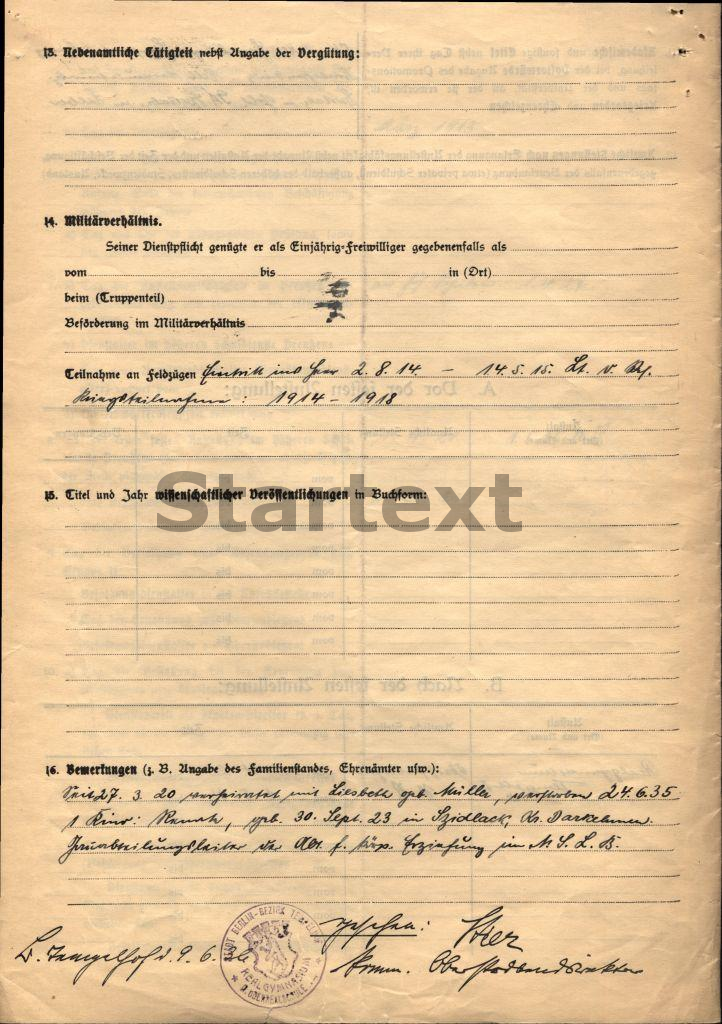 13. Nebenamtliche Tätigkeit nebst Angabe der Vergütung:
14. Militärverhältnis.
Seiner Dienstpflicht genügte er als Einjährig-Freiwilliger gegebenenfalls als
vom bis in (Ort)
beim (Truppenteil)
Beförderung im Militärverhältnis
Teilnahme an Feldzügen Eintritt ins Heer 2.8.14 – 14.5.15. Lt. d. Res.
Kriegsteilnehmer: 1914 – 1918
15. Titel und Jahr wissenschaftlicher Veröffentlichungen in Buchform:
Startext
16. Bemerkungen (z. B. Angabe des Familienstandes, Ehrenämter usw.):
Seit 27. 3. 20 verheiratet mit Liesbeth geb. Müller, verstorben 24.6.35
1 Kind: Renate, geb. 30. Sept. 23 in Szidlack, Kr. Darkehmen.
Gauabteilungsleiter der Abt. f. körp. Erziehung im N.S.L.B.
B. Tempelhof d. 9. 6.
Gesehen:
komm. Oberstudiendirektor
STADT BERLIN-BEZIRK TEMPELHOF
REALGYMNASIUM